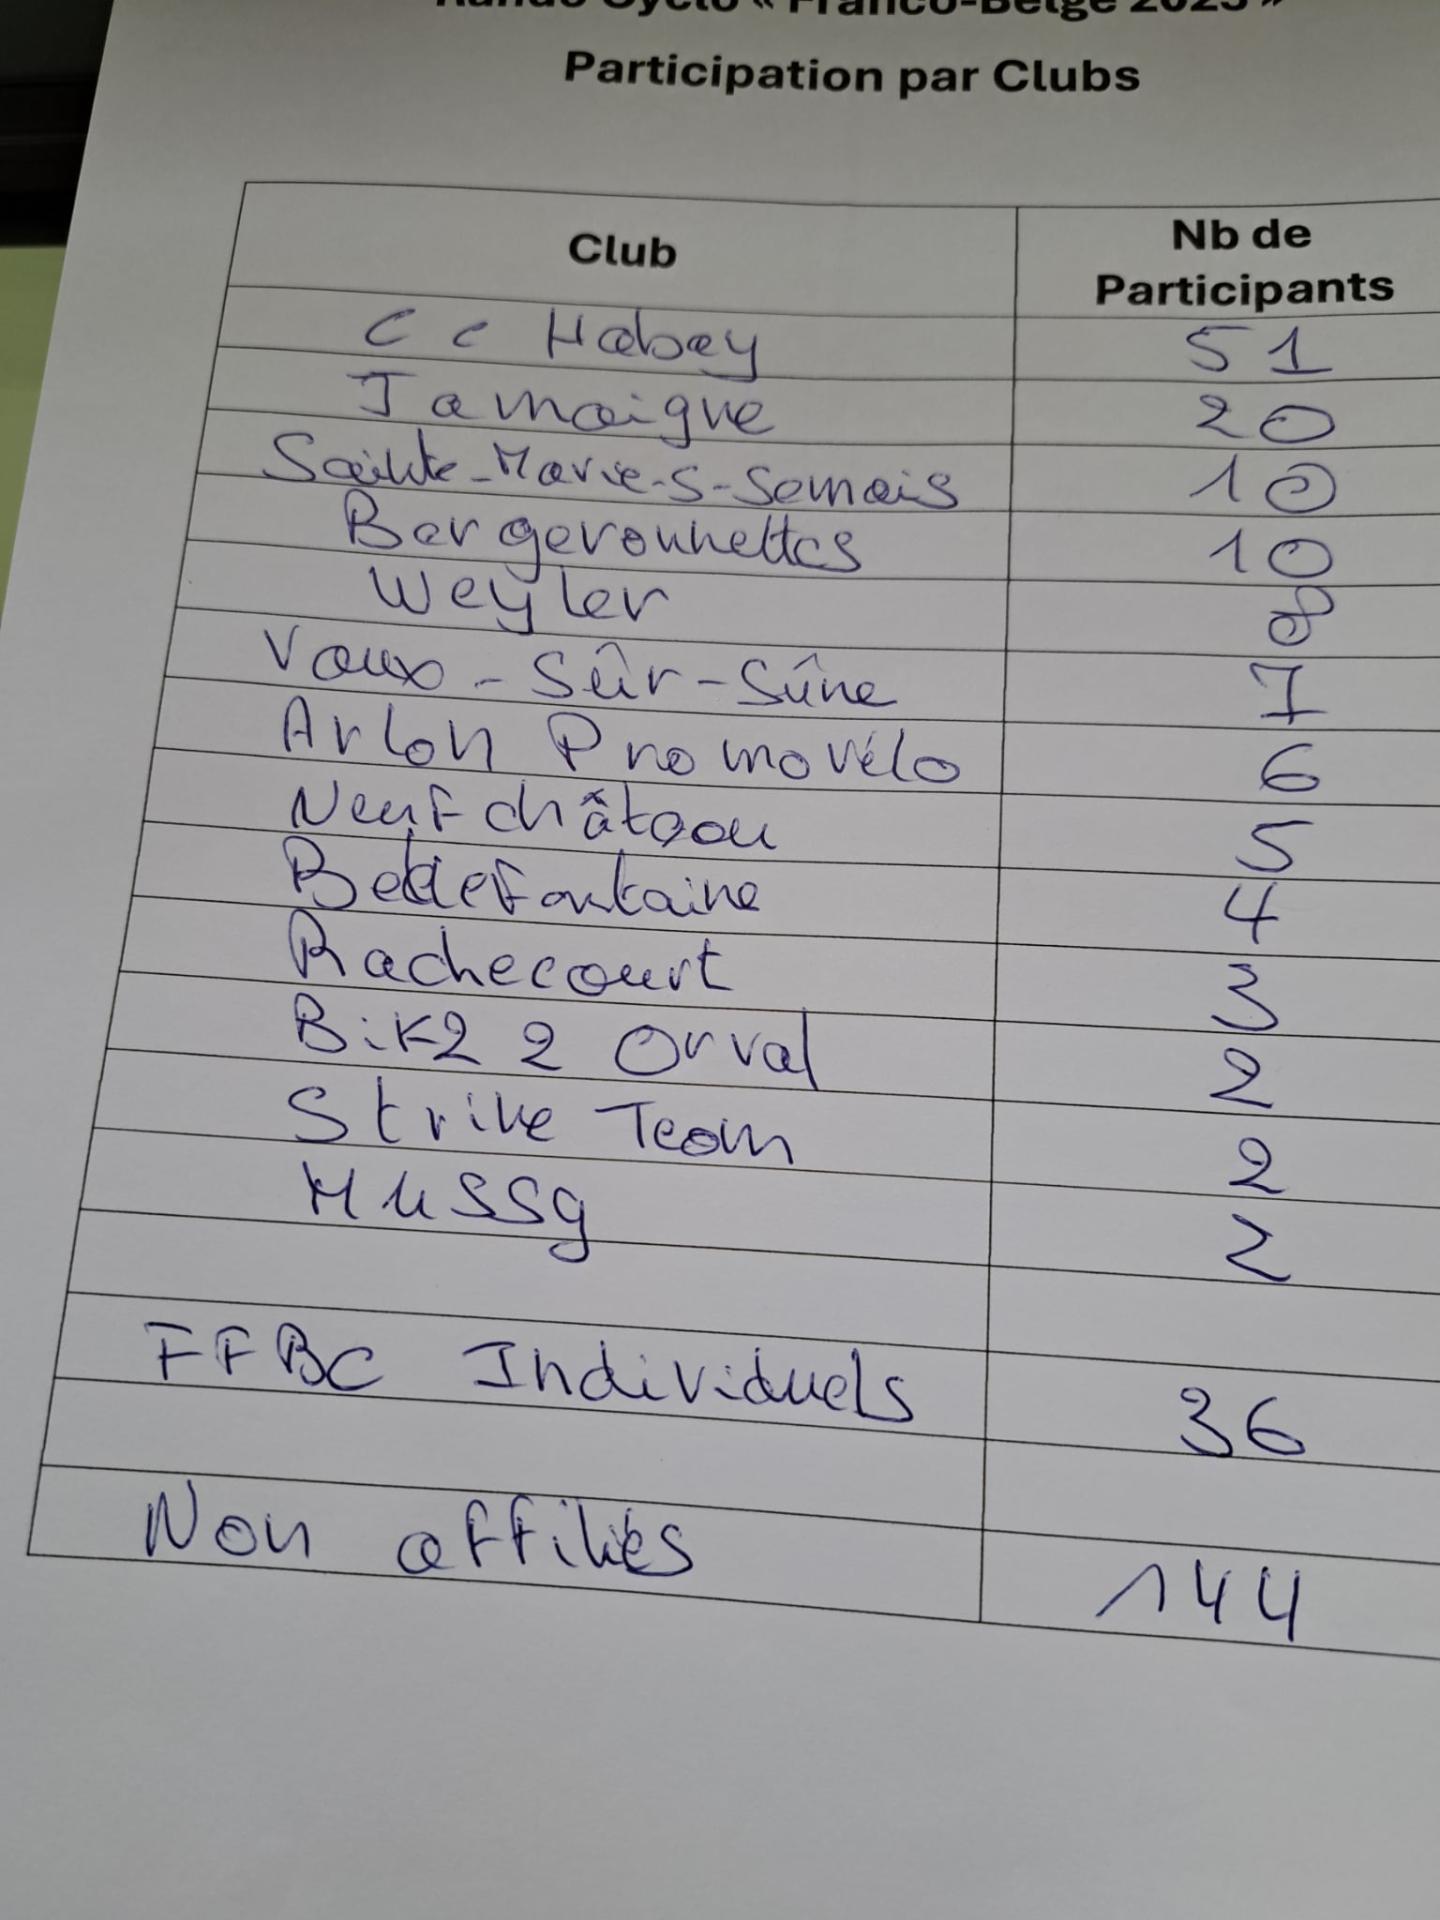 Rando Cyclo « Franco-Belge 2025 »
Participation par Clubs
Club Nb de Participants
CC Habay 51
Jamoigne 20
Sainte-Marie-S-Semois 10
Bergeronnettes 10
Weyler 8
Vaux-Sûr-Sûre 7
Arlon Promovélo 6
Neufchâteau 5
Bellefontaine 4
Rachecourt 3
Bike 2 Orval 2
Strive Team 2
Mussy 2
FFBC Individuels 36
Non affiliés 144